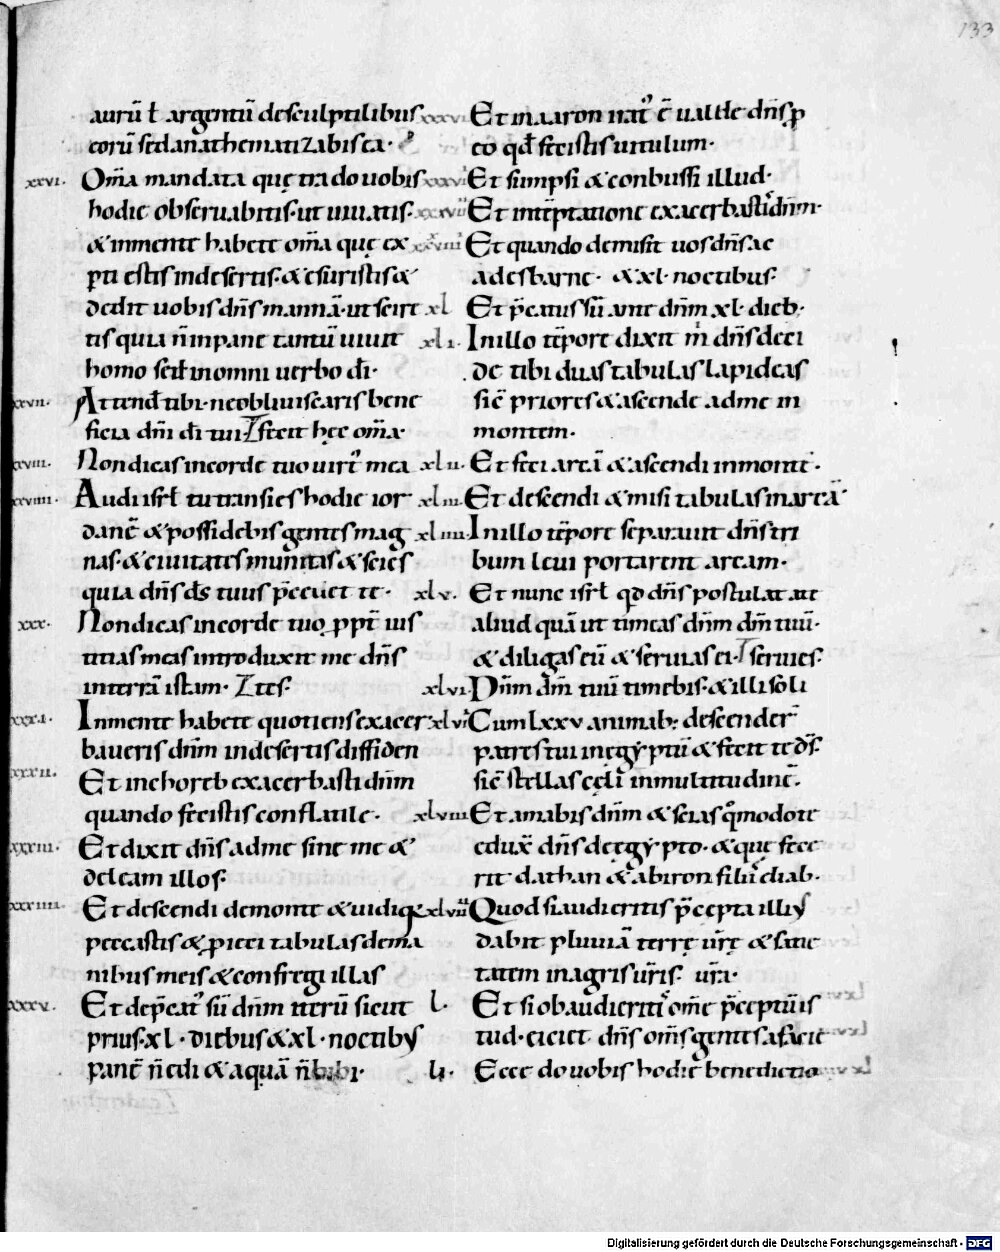 133
aurū ł argentū desculptilibus
eorū sed anathematizabis ea·
xxvi· Om̄a mandata quę trado uobis
hodie obseruabitis· ut uiuatis·
& inmente habete om̄a quę ex
pti estis indesertis· & esuristis &
dedit uobis dn̄s mannā· ut scire
tis quia n̄ inpane tantū uiuit
homo sed inomni uerbo dī·
xxvii· Attend tibi· ne obliuiscaris bene
ficia dn̄i dī tui fecit hęc om̄a·
xxviii· Non dicas incorde tuo uirt̄ mea
xxviiii· Audi isrł tu transies hodie ior
danē & possidebis gentes mag
nas· & ciuitates munitas & scies
quia dn̄s ds̄ tuus p̄cedet te·
xxx· Non dicas incorde tuo ppt̄ ius
titias meas introduxit me dn̄s
interrā istam·
xxxi· Inmente habete quotiens exacer
baueris dn̄m indesertis diffiden
xxxii· Et inchoreb exacerbasti dn̄m
quando fecistis conflatile·
xxxiii· Et dixit dn̄s adme sine me &
deleam illos·
xxxiiii· Et descendi demonte & uidi q
peccastis & pieci tabulas dema
nibus meis & confregi illas
xxxv· Et dep̄cat' sū dn̄m iterū sicut
prius· xl· diebus & xl· noctibus
panē n̄ edi & aquā n̄ bibi·
xxxvi· Et in aaron irat' ē ualde dn̄s p
eo qd̄ fecistis uitulum·
Et sumpsi & conbussi illud·
xxxviii Et intēptatione exacerbastis dn̄m·
Et quando demisit uos dn̄s ac
adesbarne· & xl· noctibus·
xl Et p̄catus sū ante dn̄m xl· dieb;
xli· Inillo tēpore dixit m̄ dn̄s deci
de tibi duas tabulas lapideas
sic̄ priores & ascende adme in
montem·
xlii· Et feci arcā & ascendi inmonte·
xliii· Et descendi & misi tabulas inarcā
xliiii· Inillo tēpore separauit dn̄s tri
bum leui portarent arcam·
xlv· Et nunc isrł qd dn̄s postulat ate
aliud quā ut timeas dn̄m dm̄ tuū·
& diligas eū & seruias ei· seruies·
xlvi· Dn̄m dm̄ tuū timebis· & illi soli
xlvii Cum lxxv animab; descender̄
patres tui inegyptū & fecit te ds̄·
sic̄ stellas cęli inmultitudinē·
xlviii Et amabis dn̄m & scias qmodo te
edux̄ dn̄s deęgypto· & quę fece
rit dathan & abiron filii eliab·
xlviiii Quod si audieritis p̄cepta illius
dabit pluuiā terrę ur̄ę & satie
tatem inagris ur̄is· ur̄a·
l· Et si obaudieriti' om̄e p̄ceptū is
tud· eiciet dn̄s om̄s gentes afacie
li· Ecce do uobis hodie benedictio
Digitalisierung gefördert durch die Deutsche Forschungsgemeinschaft - DFG